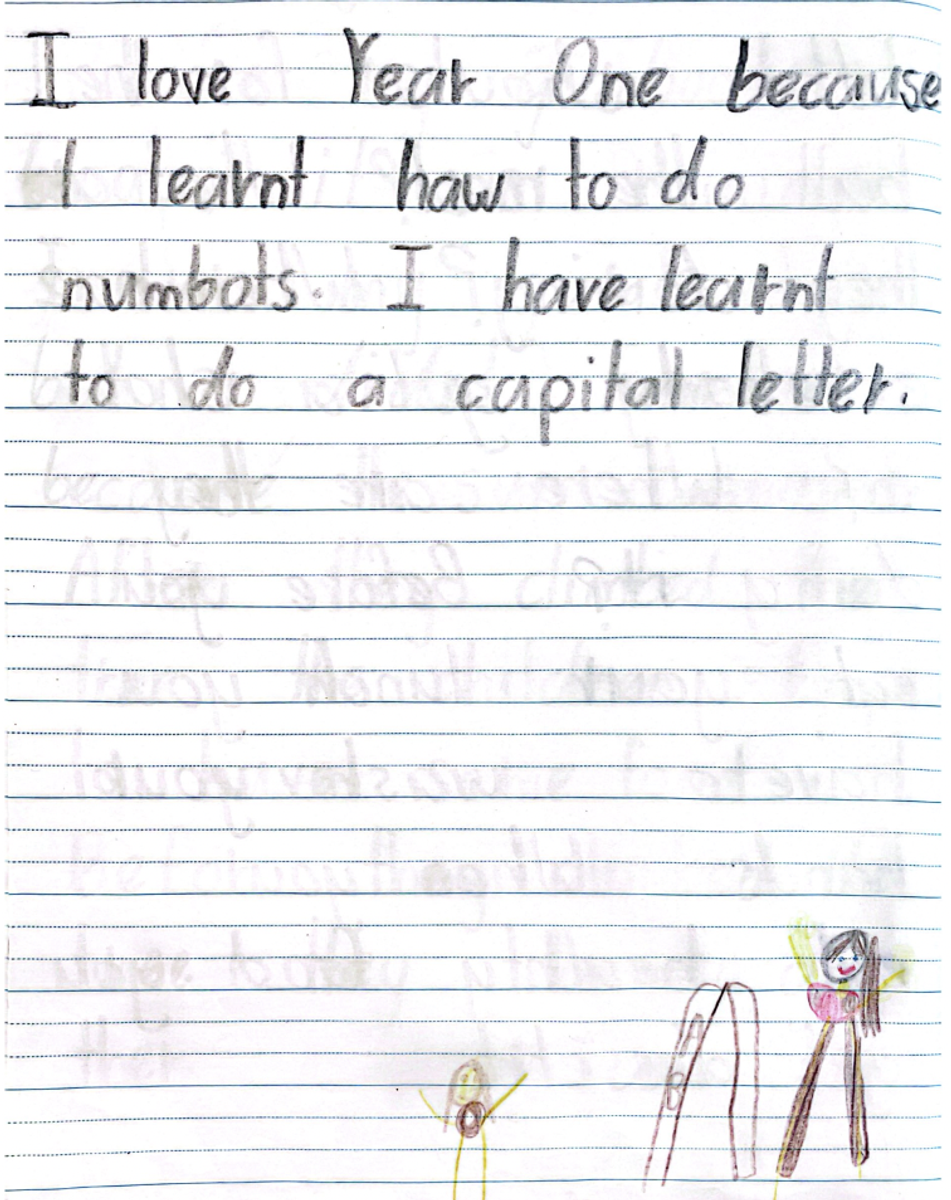 I love Year One because
I learnt haw to do
numbots. I have learnt
to do a capital letter.
A
B